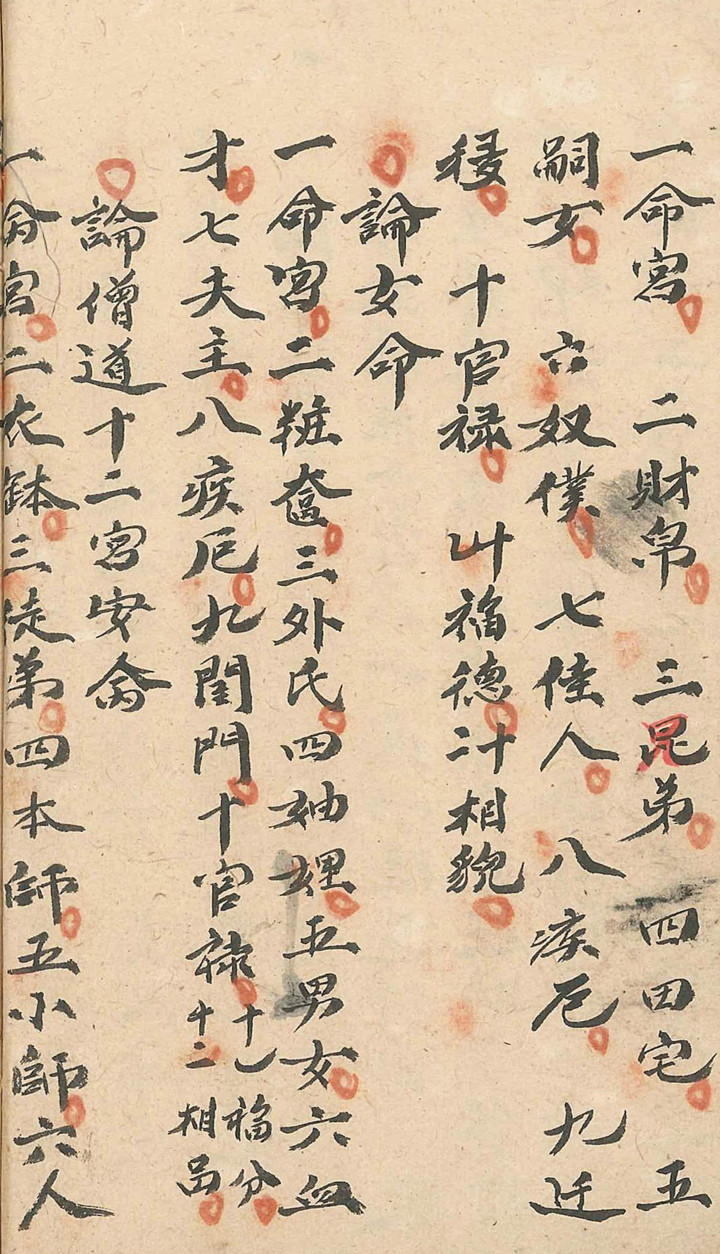 一命宮 二財帛 三昆弟 四田宅 五
嗣女 六奴僕 七佳人 八疾厄 九迁
移 十官禄 十一福德 十二相貌
論女命
一命宮二粧奩三外氏四妯娌五男女六血
才七夫主八疾厄九閨門十官祿十一福分十二相皃
論僧道十二宮安命
一命宮二衣鉢三徒弟四本師五小師六人